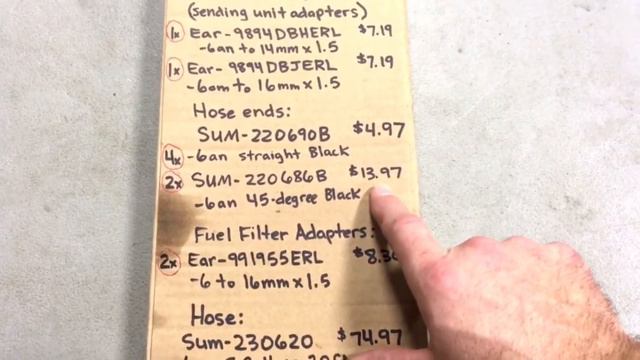 (sending unit adapters)
1x Ear-9894DBHERL $7.19
-6an to 14mm x 1.5
1x Ear-9894DBJERL $7.19
-6am to 16mm x 1.5
Hose ends:
SUM-220690B $4.97
4x -6an straight Black
2x SUM-220686B $13.97
-6an 45-degree Black
Fuel Filter Adapters:
2x Ear-991955ERL
-6 to 16mm x 1.5
Hose:
Sum-230620 $74.97